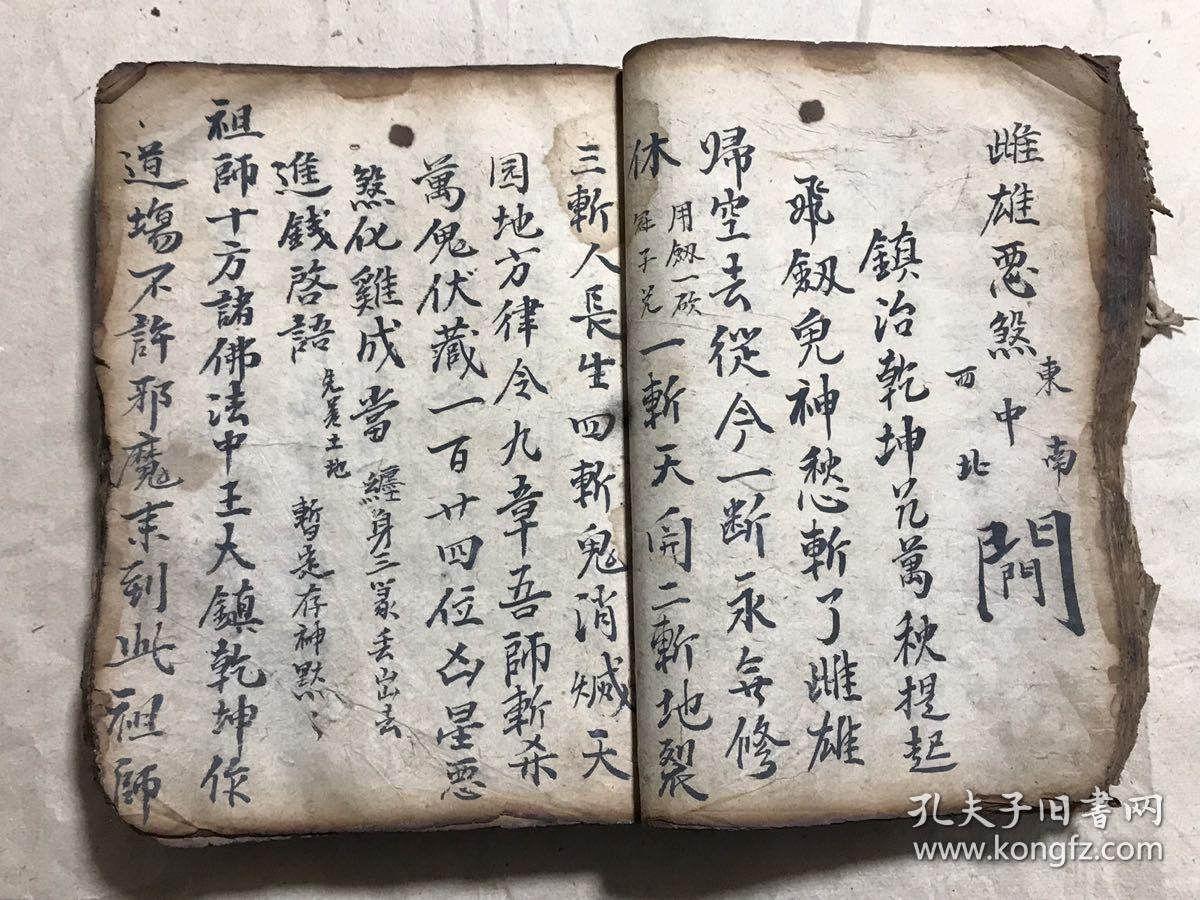 雌雄惡煞 東 西 中 南 北
鎮治乾坤几萬秧提起
飛劔鬼神愁斬了雌雄
歸空去從今一断永無修
休 用劔一砍 一斬天開二斬地裂
三斬人長生四斬鬼消滅天
园地方律令九章吾師斬杀
萬鬼伏藏一百廿四位凶星惡
煞化雞成當 纏身三 丢山去
進錢啓語 土地 暫走存神默〻
祖師十方諸佛法中王大鎮乾坤作
道塲不許邪魔来到此祖師
孔夫子旧书网
www.kongfz.com